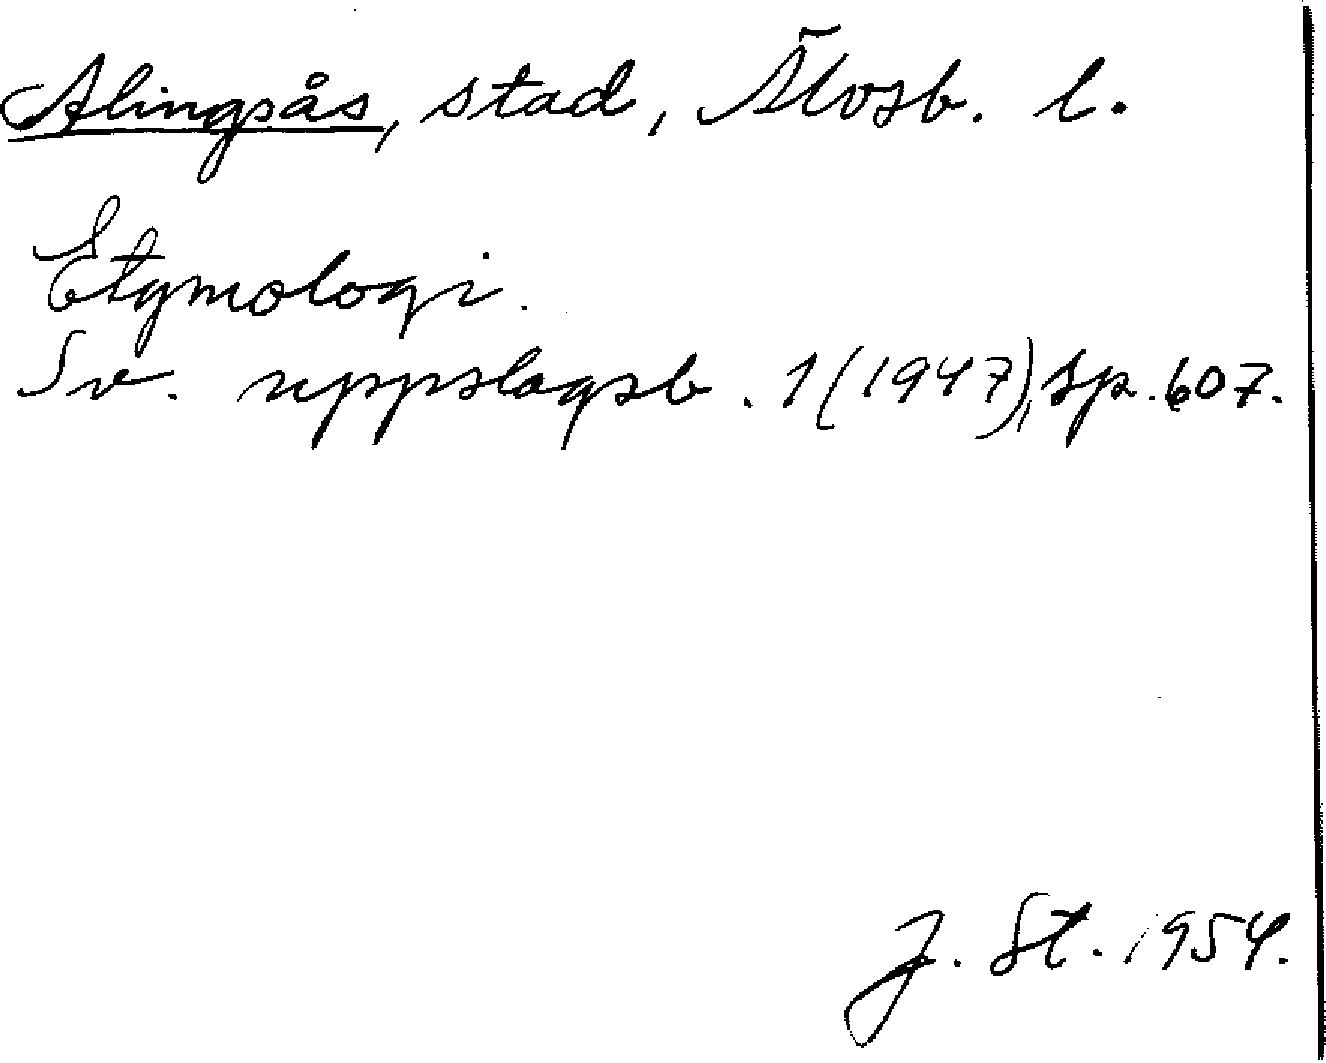 Alingsås, stad, Älvsb. l.
Etymologi.
Sv. uppslagsb. 1 (1947), sp. 607.
J. St. 1954.